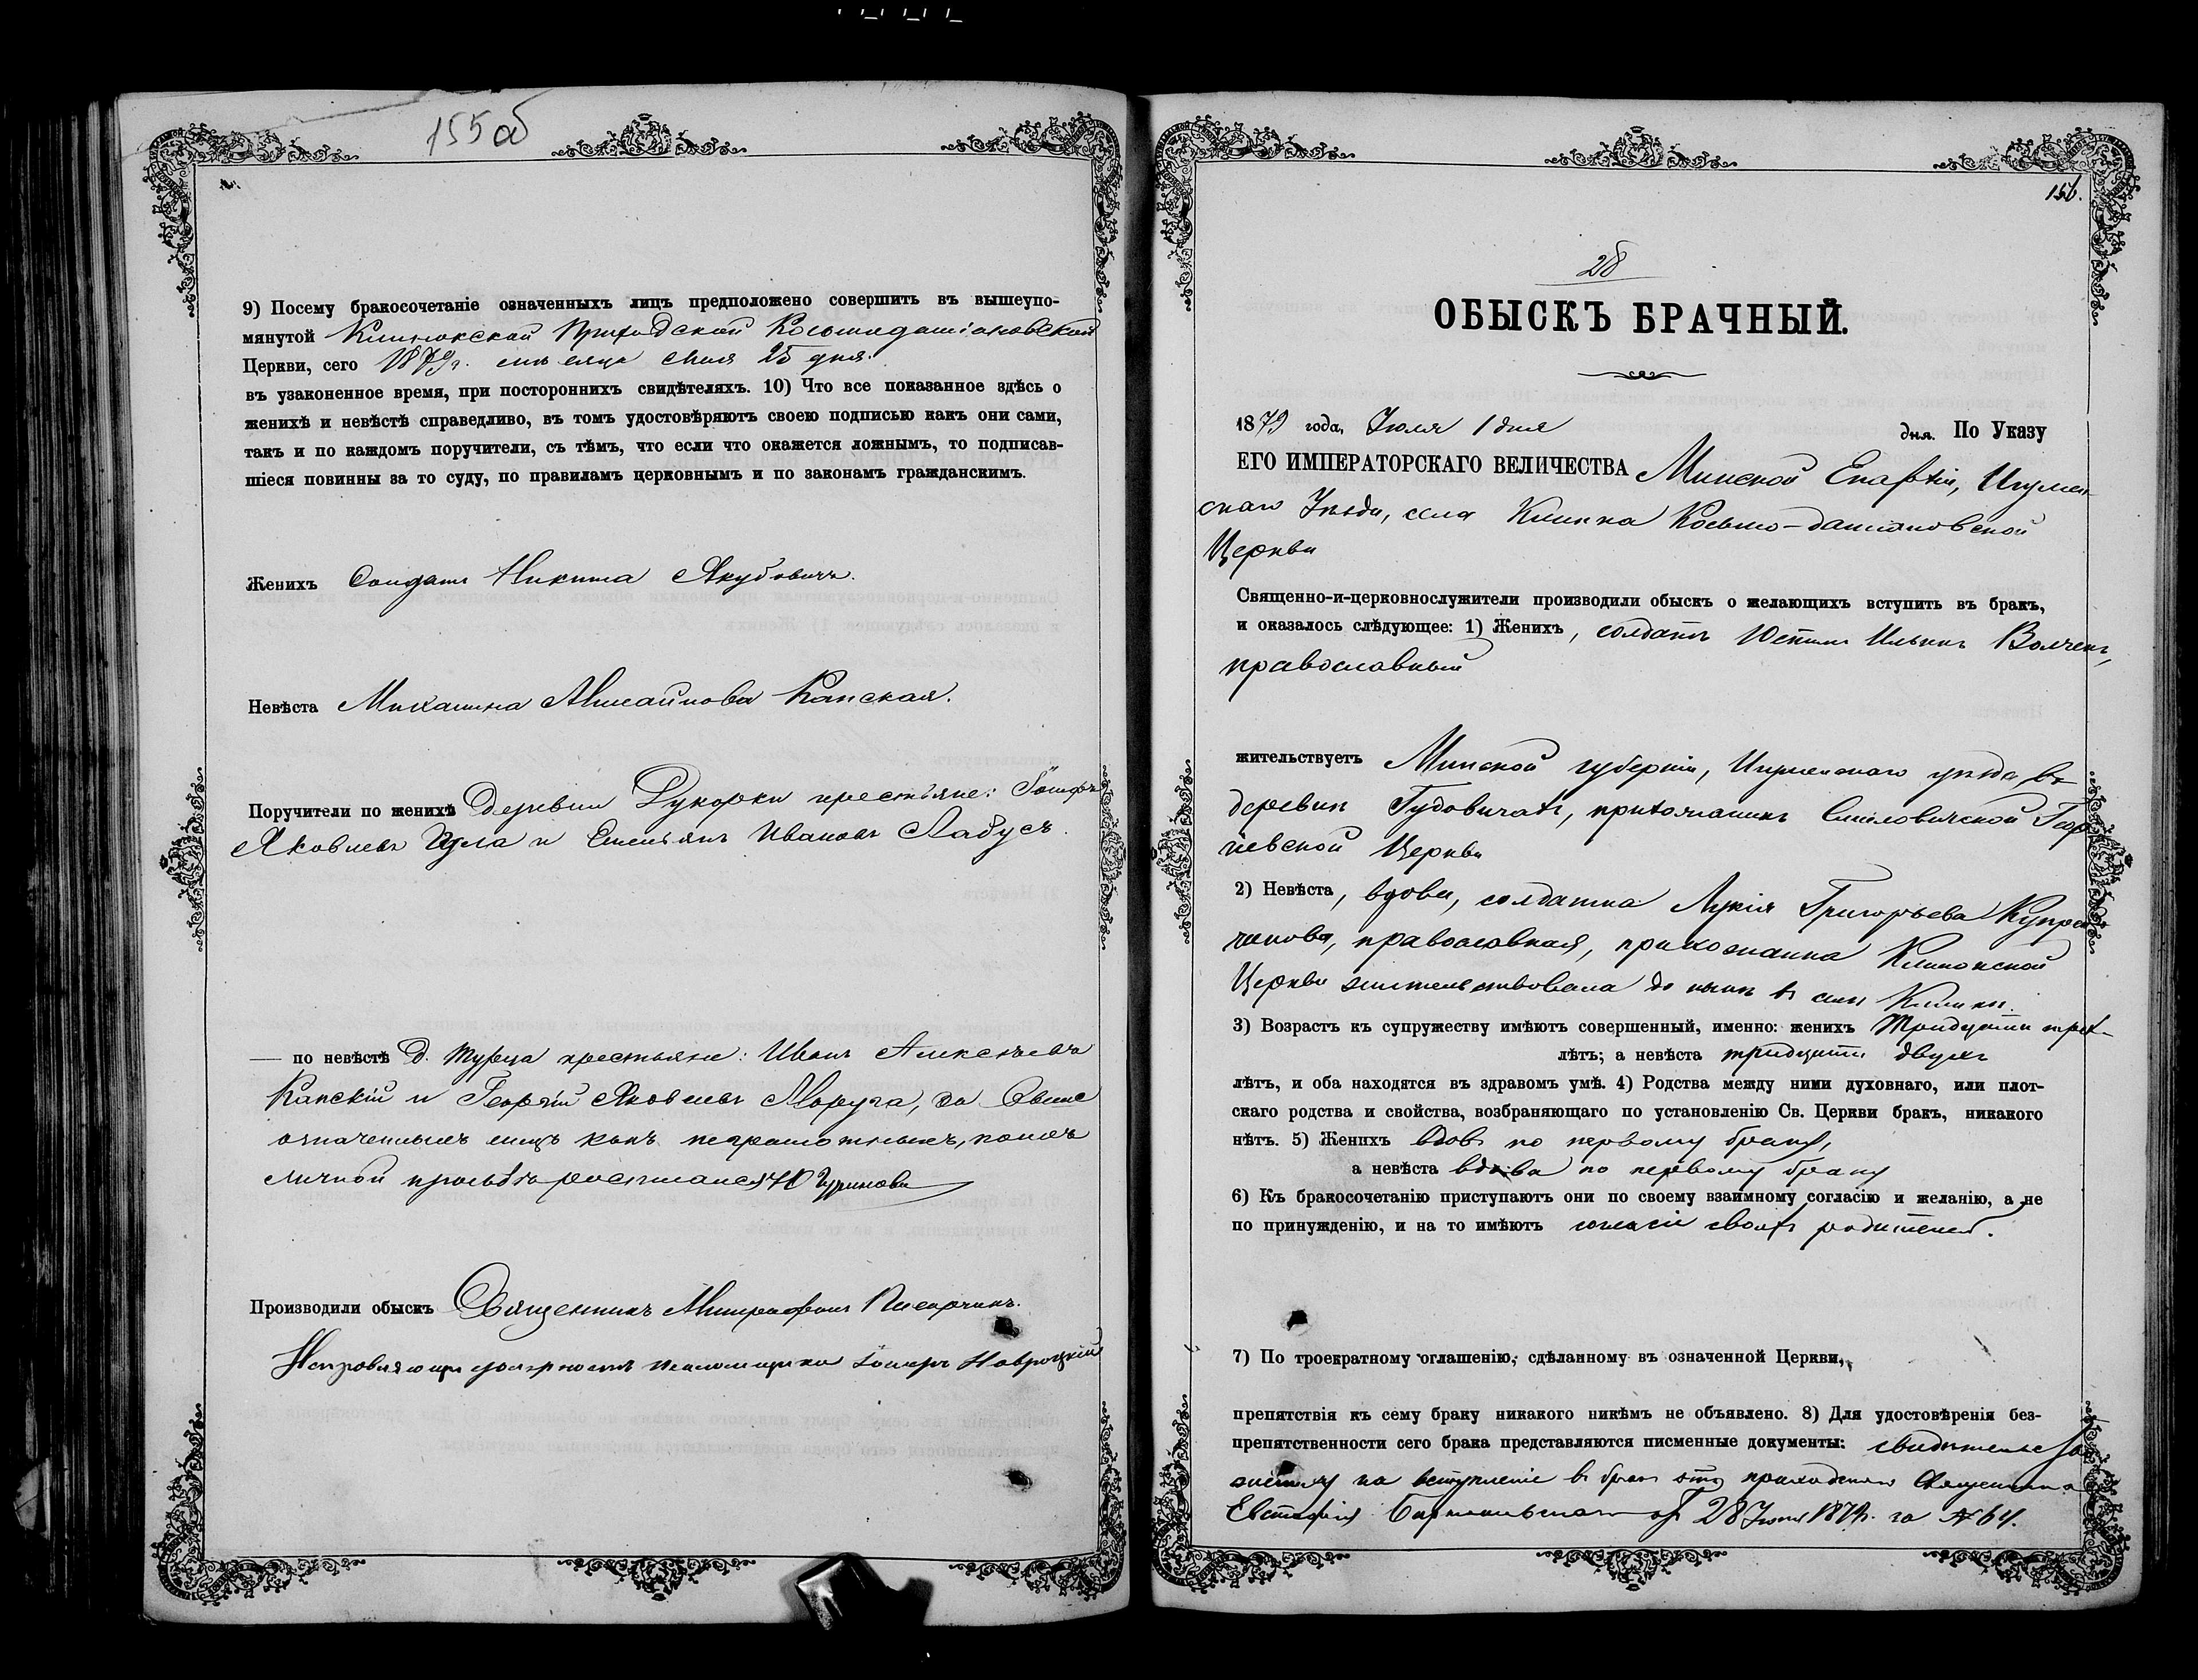 155 об
9) Посему бракосочетаніе означенныхъ лицъ предположено совершить въ вышеупо-
мянутой Клинокской Приходской Косьмодаміановской
Церкви, сего 1879г. мѣсяца 25 дня.
въ узаконенное время, при постороннихъ свидѣтеляхъ. 10) Что все показанное здѣсь о
женихѣ и невѣстѣ справедливо, въ томъ удостовѣряютъ своею подписью какъ они сами,
такъ и по каждомъ поручители, съ тѣмъ, что если что окажется ложнымъ, то подписав-
шіеся повинны за то суду, по правиламъ церковнымъ и по законамъ гражданскимъ.
Женихъ Солдатъ Никита Якубовичъ.
Невѣста Михалина Канская.
Поручители по женихѣ Деревни Дукорки крестьяне: Іосифъ
Яковлевъ Гула и Емельянъ Ивановъ Лабусъ.
— по невѣстѣ д. Турца крестьяне: Иванъ Алексѣевъ
Канскій и Георгій Яковлевъ Маруга, за
означенныхъ лицъ какъ неграмотныхъ, по ихъ
личной просьбѣ росписался
Производили обыскъ Священникъ Митрофанъ
Исправляющій должность псаломщика Іосифъ Навроцкій
156.
28
ОБЫСКЪ БРАЧНЫЙ.
1879 года, Іюля 1 дня дня. По Указу
ЕГО ИМПЕРАТОРСКАГО ВЕЛИЧЕСТВА Минской Епархіи, Игумен
скаго Уѣзда, села Клинка Косьмо-Даміановской
Церкви
Священно-и-церковнослужители производили обыскъ о желающихъ вступить въ бракъ,
и оказалось слѣдующее: 1) Женихъ, солдатъ Юстинъ Ильинъ Волчекъ,
православный
жительствуетъ Минской губерніи, Игуменскаго уѣзда, въ
деревни Гудовичахъ, прихожанинъ Смиловичской Геор
гіевской Церкви
2) Невѣста, вдова, солдатка Лукія Григорьева Купре
чикова, православная, прихожанка Клинокской
Церкви жительствовала до нынѣ въ селѣ Клинкѣ.
3) Возрастъ къ супружеству имѣютъ совершенный, именно: женихъ Тридцати трех-
лѣтъ; а невѣста тридцати двухъ
лѣтъ, и оба находятся въ здравомъ умѣ. 4) Родства между ними духовнаго, или плот-
скаго родства и свойства, возбраняющаго по установленію Св. Церкви бракъ, никакого
нѣтъ. 5) Женихъ вдовъ по первому браку,
а невѣста вдова по первому браку
6) Къ бракосочетанію приступаютъ они по своему взаимному согласію и желанію, а не
по принужденію, и на то имѣютъ согласіе своихъ родителей.
7) По троекратному оглашенію, сдѣланному въ означенной Церкви,
препятствія къ сему браку никакого никѣмъ не объявлено. 8) Для удостовѣренія без-
препятственности сего брака представляются писменные документы: свидѣтельство
на вступленіе въ бракъ приходскаго Священника
Евстафія отъ 28 Іюня 1879г. за № 64.